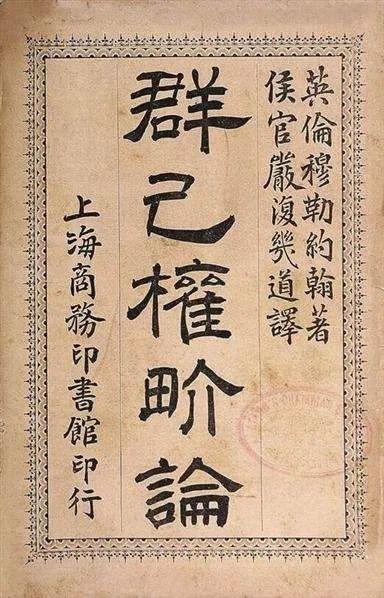 英倫穆勒約翰著
侯官嚴復幾道譯
群己權界論
上海商務印書館印行